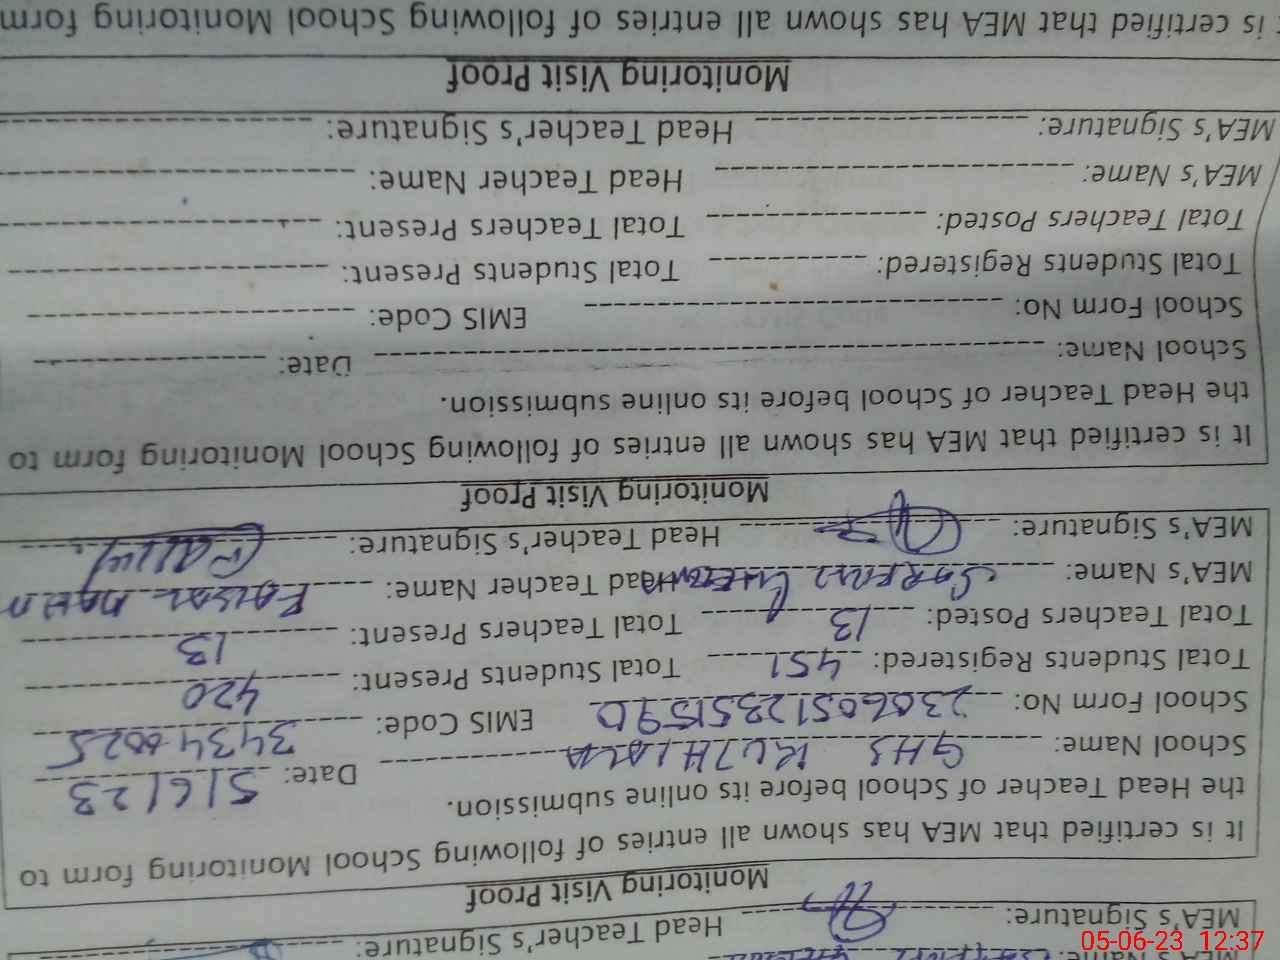 MEA's Name:
MEA's Signature: Head Teacher's Signature:
Monitoring Visit Proof
It is certified that MEA has shown all entries of following School Monitoring form to
the Head Teacher of School before its online submission.
School Name: GHS KUTHIALA Date: 5/6/23
School Form No: 23060512351590 EMIS Code: 34340025
Total Students Registered: 451 Total Students Present: 420
Total Teachers Posted: 13 Total Teachers Present: 13
MEA's Name: Head Teacher Name: FAISAL
MEA's Signature: Head Teacher's Signature:
Monitoring Visit Proof
It is certified that MEA has shown all entries of following School Monitoring form to
the Head Teacher of School before its online submission.
School Name: Date:
School Form No: EMIS Code:
Total Students Registered: Total Students Present:
Total Teachers Posted: Total Teachers Present:
MEA's Name: Head Teacher Name:
MEA's Signature: Head Teacher's Signature:
Monitoring Visit Proof
is certified that MEA has shown all entries of following School Monitoring form
05-06-23 12:37